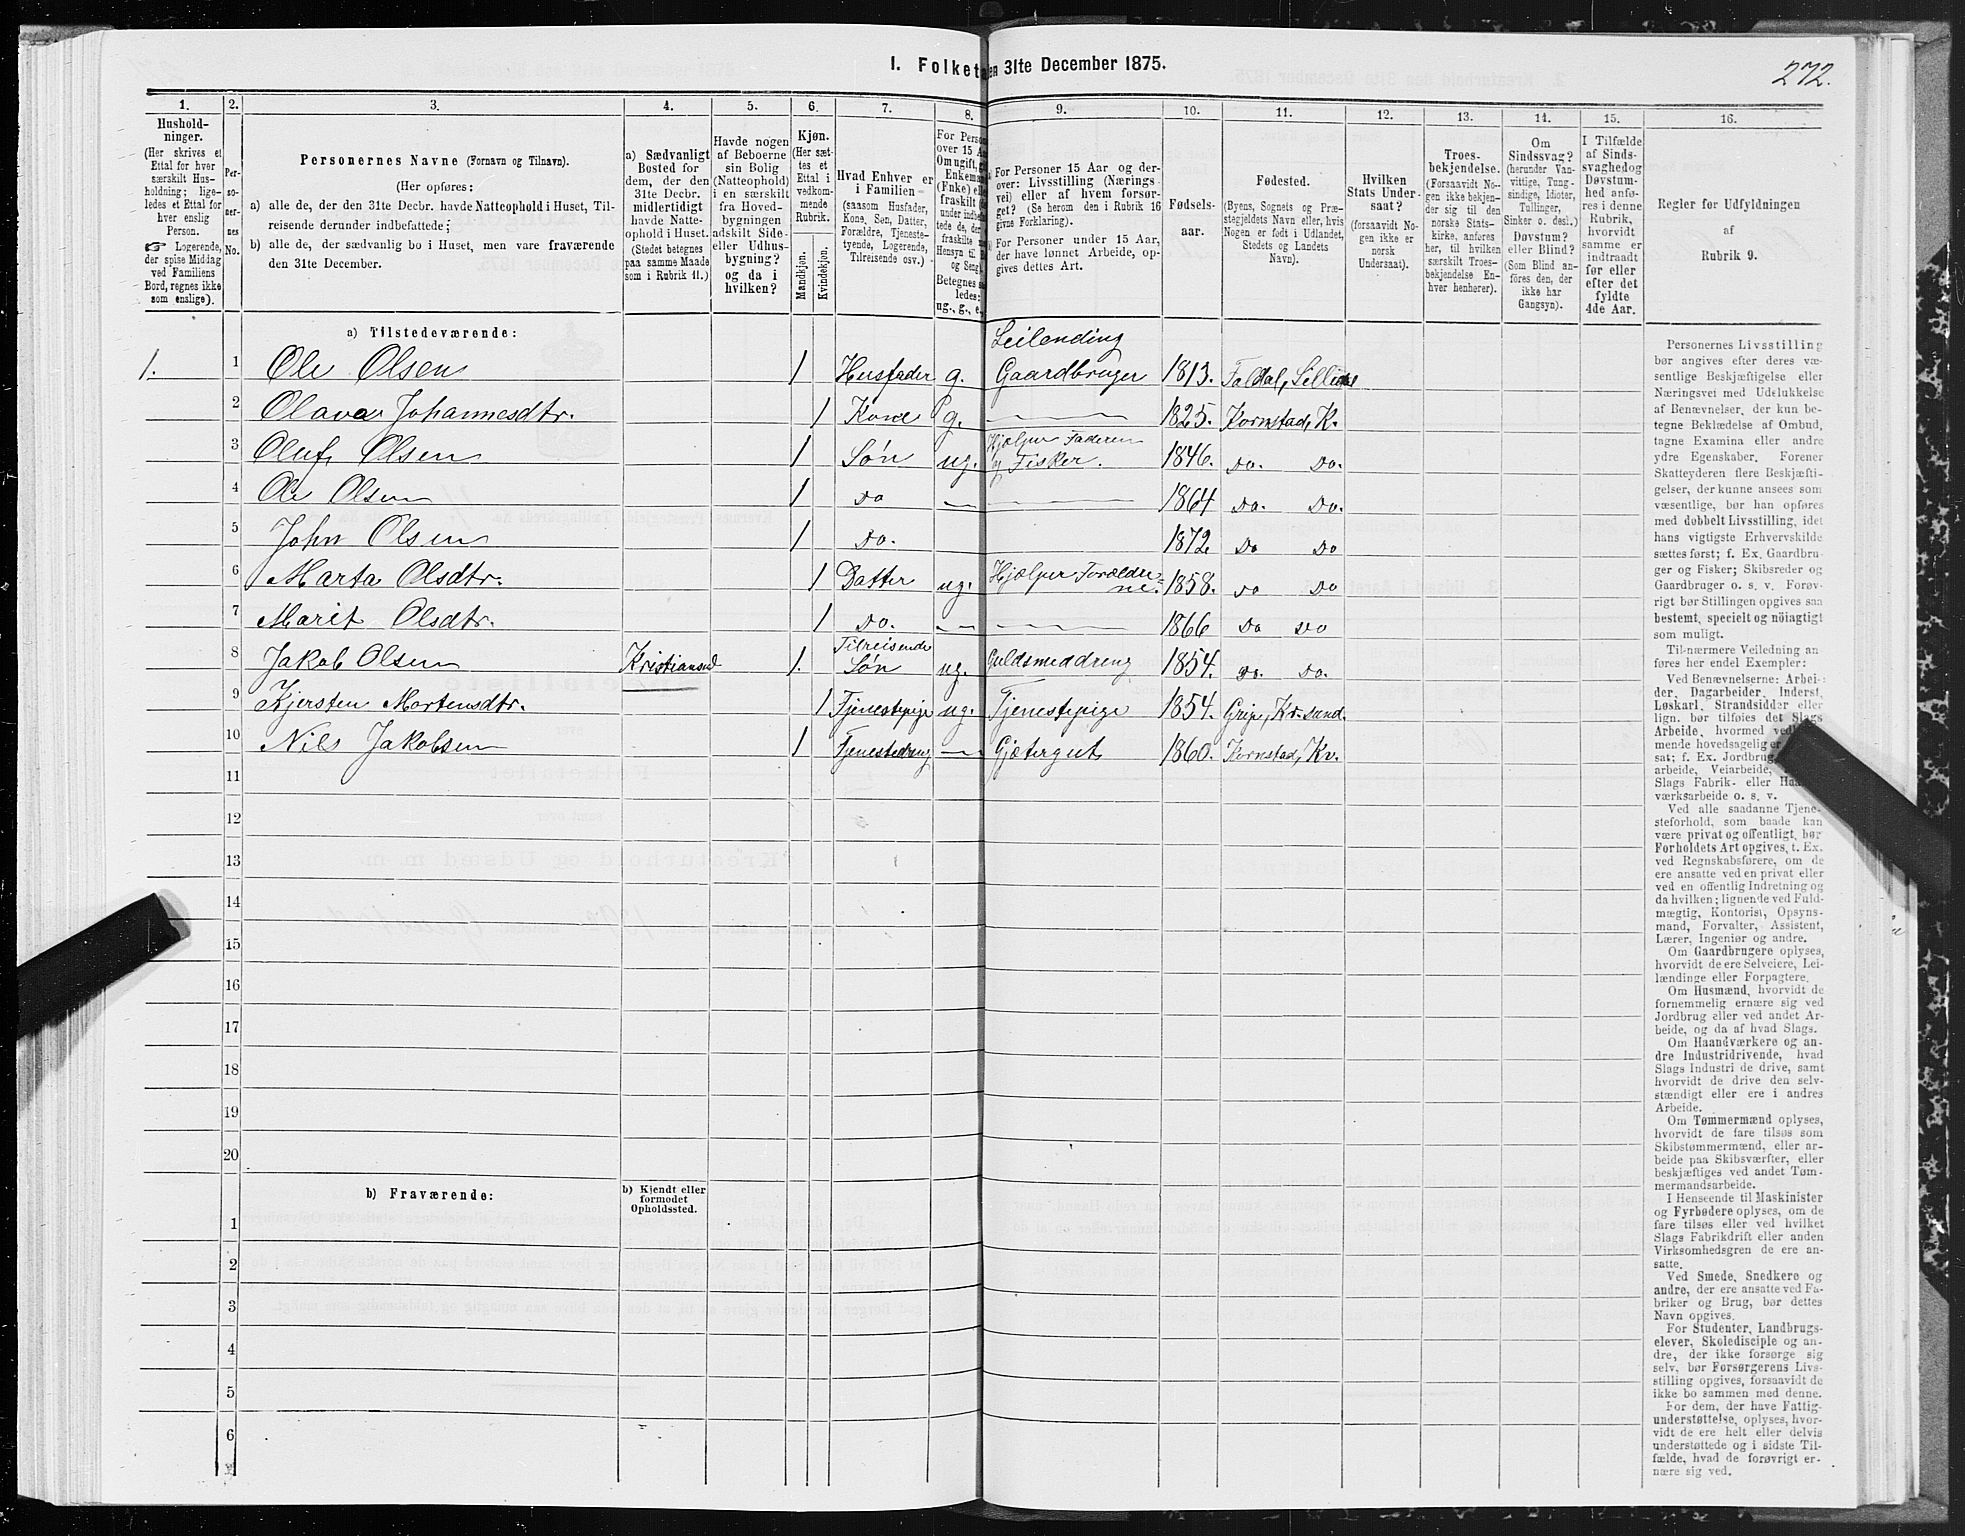 I. Folketa en 31te December 1875.
272.
1. 2. 3. 4. 5. 6. 7. 8. 9. 10. 11. 12. 13. 14. 15. 16.
Hushold-
ninger.
(Her skrives et
Ettal for hver
særskilt Hus-
holdning; lige-
ledes et Ettal for
hver enslig
Person.
☞ Logerende,
der spise Middag
ved Familiens
Bord, regnes ikke
som enslige).
Per-
so-
ner-
nes
No.
Personernes Navne (Fornavn og Tilnavn).
(Her opføres:
a) alle de, der den 31te Decbr. havde Natteophold i Huset, Til-
reisende derunder indbefattede;
b) alle de, der sædvanlig bo i Huset, men vare fraværende
den 31te December.
a) Sædvanligt
Bosted for
dem, der den
31te Decbr.
midlertidigt
havde Natte-
ophold i Huset.
(Stedet betegnes
paa samme Maade
som i Rubrik 11.)
Havde nogen
af Beboerne
sin Bolig
(Natteophold)
i en særskilt
fra Hoved-
bygningen
adskilt Side-
eller Udhus-
bygning?
og da i
hvilken?
Kjøn.
(Her sæt-
tes et
Ettal i
vedkom-
mende
Rubrik.
Mandkjøn.
Kvindekjøn.
Hvad Enhver er
i Familien
(saasom Husfader,
Kone, Søn, Datter,
Forældre, Tjeneste-
tyende, Logerende,
Tilreisende osv.)
For Perso
over 15 A
Om ugift,
Enkema
(Fnke) el
fraskilt
under indbe
tede de, der
fraskilte
Hensyn til B
og Seng
Betegnes sa
ledes:
ug., g., e.
For Personer 15 Aar og der-
over: Livsstilling (Nærings-
vei) eller af hvem forsør-
get? (Se herom den i Rubrik 16
givne Forklaring).
For Personer under 15 Aar,
der have lønnet Arbeide, op-
gives dettes Art.
Fødsels-
aar.
Fødested.
(Byens, Sognets og Præ-
stegjeldets Navn eller, hvis
Nogen er født i Udlandet,
Stedets og Landets
Navn).
Hvilken
Stats Under-
saat?
(forsaavidt No-
gen ikke er
norsk
Undersaat).
Troes-
bekjendelse.
(Forsaavidt No-
gen ikke bekjen-
der sig til den
norske Stats-
kirke, anføres
her, til hvilken
særskilt Troes-
bekjendelse En-
hver henhører).
Om
Sindssvag?
(herunder Van-
vittige, Tung-
sindige, Idioter,
Tullinger,
Sinker o. desl.)
Døvstum?
eller Blind?
(Som Blind an-
føres den, der
ikke har
Gangsyn).
I Tilfælde
af Sinds-
svaghed og
Døvstum-
hed anfø-
res i denne
Rubrik,
hvorvidt
samme er
indtraadt
før eller
efter det
fyldte
4de Aar.
Regler for Udfyldningen
af
Rubrik 9.
a) Tilstedeværende:
Leilending
1. 1 Ole Olsen 1 Husfader g. Gaardbruger 1813. Faldal, Lille
2 Olava Johannesdtr. 1 Kone g. 1825. Kornstad, K.
3 Oluf Olsen 1 Søn ug. Hjælper Faderen og Fisker. 1846. Do. Do.
4 Ole Olsen 1 Do 1864 Do. Do.
5 John Olsen 1 Do. 1872 Do Do
6 Marta Olsdtr. 1 Datter ug. Hjælper Forældre- ne. 1858. Do Do
7 Marit Olsdtr. 1 Do. 1866 Do Do
8 Jakob Olsen Kristiansund 1. Tilreisende Søn ug. Guldsmeddreng 1854. Do. Do.
9 Kjersten Mortensdtr. 1 Tjenestepige ug. Tjenestepige 1854. Grip, Kr.sund.
10 Nils Jakobsen 1 Tjenestedreng Gjætergut 1860. Kornstad, Kv.
11
12
13
14
15
16
17
18
19
20
b) Fraværende:
b) Kjendt eller
formodet
Opholdssted.
1
2
3
4
5
6
Personernes Livsstilling
bør angives efter deres væ-
sentlige Beskjæftigelse eller
Næringsvei med Udelukkelse
af Benævnelser, der kun be-
tegne Beklædelse af Ombud,
tagne Examina eller andre
ydre Egenskaber. Forener
Skatteyderen flere Beskjæfti-
gelser, der kunne ansees som
væsentlige, bør han opføres
med dobbelt Livsstilling, idet
hans vigtigste Erhvervskilde
sættes først; f. Ex. Gaardbru-
ger og Fisker; Skibsreder og
Gaardbruger o. s. v. Forøv-
rigt bør Stillingen opgives saa
bestemt, specielt og nøiagtigt
som muligt.
Til nærmere Veiledning an-
føres her endel Exempler:
Ved Benævnelserne: Arbei-
der, Dagarbeider, Inderst,
Løskarl, Strandsidder eller
lign. bør tilføies det Slags
Arbeide, hvormed ved
mende hovedsagelig er
sat; f. Ex. Jordbrug
arbeide, Veiarbeide,
Slags Fabrik- eller Ha
værksarbeide o. s. v.
Ved alle saadanne Tjene-
steforhold, som baade kan
være privat og offentligt, bør
Forholdets Art opgives, t. Ex.
ved Regnskabsførere, om de
ere ansatte ved en privat eller
ved en offentlig Indretning og
da hvilken; lignende ved Fuld-
mægtig, Kontorist, Opsyns-
mand, Forvalter, Assistent,
Lærer, Ingeniør og andre.
Om Gaardbrugere oplyses,
hvorvidt de ere Selveiere, Lei-
lændinge eller Forpagtere.
Om Husmænd, hvorvidt de
fornemmelig ernære sig ved
Jordbrug eller ved andet Ar-
beide, og da af hvad Slags.
Om Haandværkere og an-
dre Industridrivende, hvad
Slags Industri de drive, samt
hvorvidt de drive den selv-
stændigt eller ere i andres
Arbeide.
Om Tømmermænd oplyses,
hvorvidt de fare tilsøs som
Skibstømmermænd, eller ar-
beide paa Skibsværfter, eller
beskjæftiges ved andet Tøm-
mermandsarbeide.
I Henseende til Maskinister
og Fyrbødere oplyses, om de
fare tilsøs eller ved hvilket
Slags Fabrikdrift eller anden
Virksomhedsgren de ere an-
satte.
Ved Smede, Snedkere og
andre, der ere ansatte ved Fa-
briker og Brug, bør dettes
Navn opgives.
For Studenter, Landbrugs-
elever, Skoledisciple og an-
dre, der ikke forsørge sig
selv, bør Forsørgerens Livs-
stilling opgives, forsaavidt de
ikke bo sammen med denne.
For dem, der have Fattig-
understøttelse, oplyses, hvor-
vidt de ere helt eller delvis
understøttede og i sidste Til-
fælde, hvad de forøvrigt er-
nære sig ved.